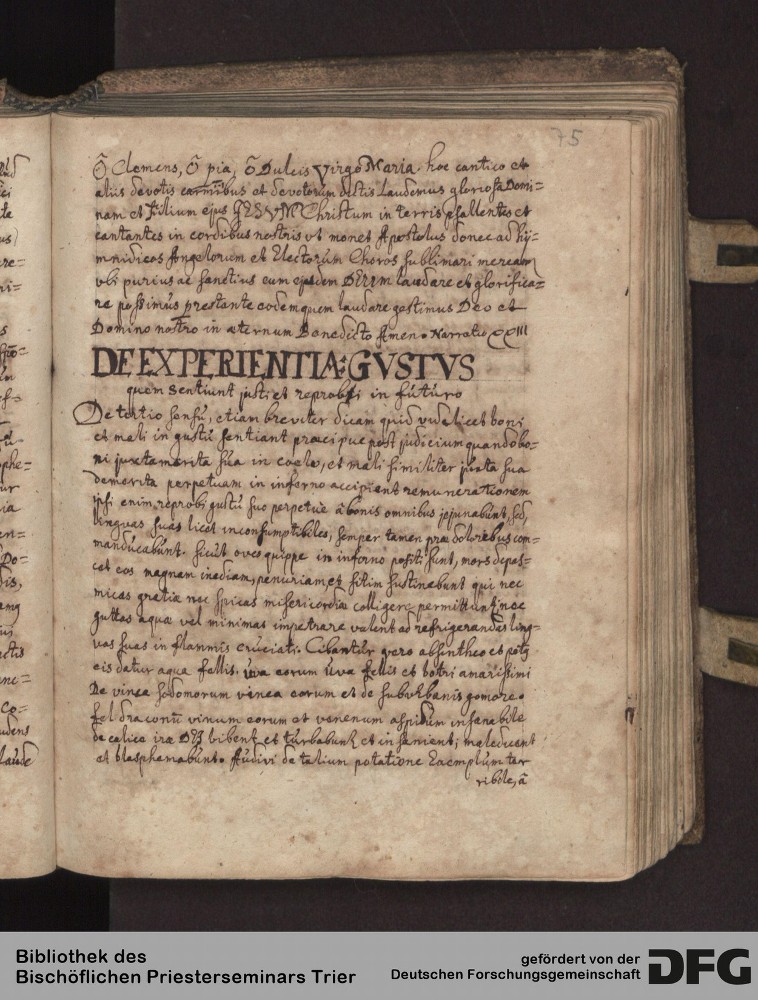 75
Ô Clemens, Ô pia, Ô Dulcis Virgo Maria hoc cantico et
aliis devotis carminibus et devotorum dictis Laudemus gloriosa Domi=
nam et Filium ejus JESVM Christum in terris psallentes et
cantantes in cordibus nostris ut monet Apostolus donec ad hy=
mnidicos Angelorum et Electorum Choros sublimari mereamur
vbi purius ac sanctius eum eundem laudare et glorifica=
re possimus prestante eodem quem laudare gestimus Deo et
Domino nostro in æternum Benedicto Amen. Narratio XXIII
DE EXPERIENTIA: GVSTVS
quem Sentiunt justi et reprobi in futuro
De tertio sensu, etiam breviter dicam quid videlicet boni
et mali in gustu sentiant præcipue post judicium quando bo=
ni juxta merita sua in coelo, et mali similiter juxta sua
demerita perpetuam in inferno accipient remunerationem
ipsi enim reprobi gustu suo perpetue a bonis omnibus jejunabunt, sed
linguas suas licet inconsumptibiles, semper tamen præ doloribus com=
manducabunt. sicut oves quippe in inferno positi sunt, mors depas=
cet eos magnam inediam, penuriam et sitim sustinebunt qui nec
micas gratiæ nec spicas misericordiæ colligere permittuntur, nec
guttas aquæ vel minimas impetrare valent ad refrigerandas ling=
uas suas in flammis cruciati. Cibantur vero absintheo et potus
eis datur aqua fellis. uva eorum uva fellis et botri amarissimi
De vinea sodomorum vinea eorum et de suburbanis gomore.
fel draconu vinum eorum et venenum aspidum insanabile
de calice iræ DEI bibent et turbabunt et insanient; maledicent
et blasphemabunt. Audivi de talium potatione Exemplum ter
ribile, a
Bibliothek des
Bischöflichen Priesterseminars Trier
gefördert von der
Deutschen Forschungsgemeinschaft
DFG